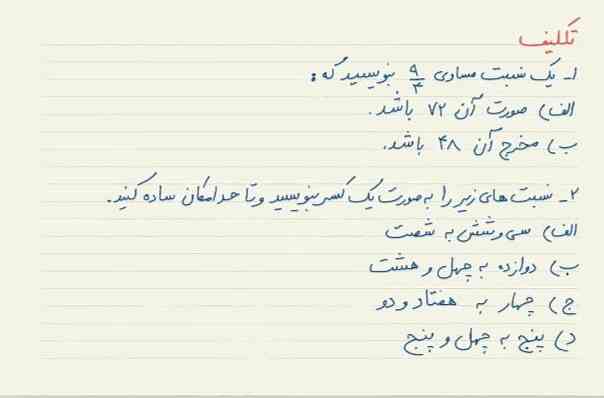 تکلیف
۱- یک نسبت مساوی ۹/۴ بنویسید که :
الف) صورت آن ۷۲ باشد.
ب) مخرج آن ۴۸ باشد.
۲- نسبت های زیر را به صورت یک کسر بنویسید و تا حد امکان ساده کنید.
الف) سی و شش به شصت
ب) دوازده به چهل و هشت
ج) چهار به هفتاد و دو
د) پنج به چهل و پنج